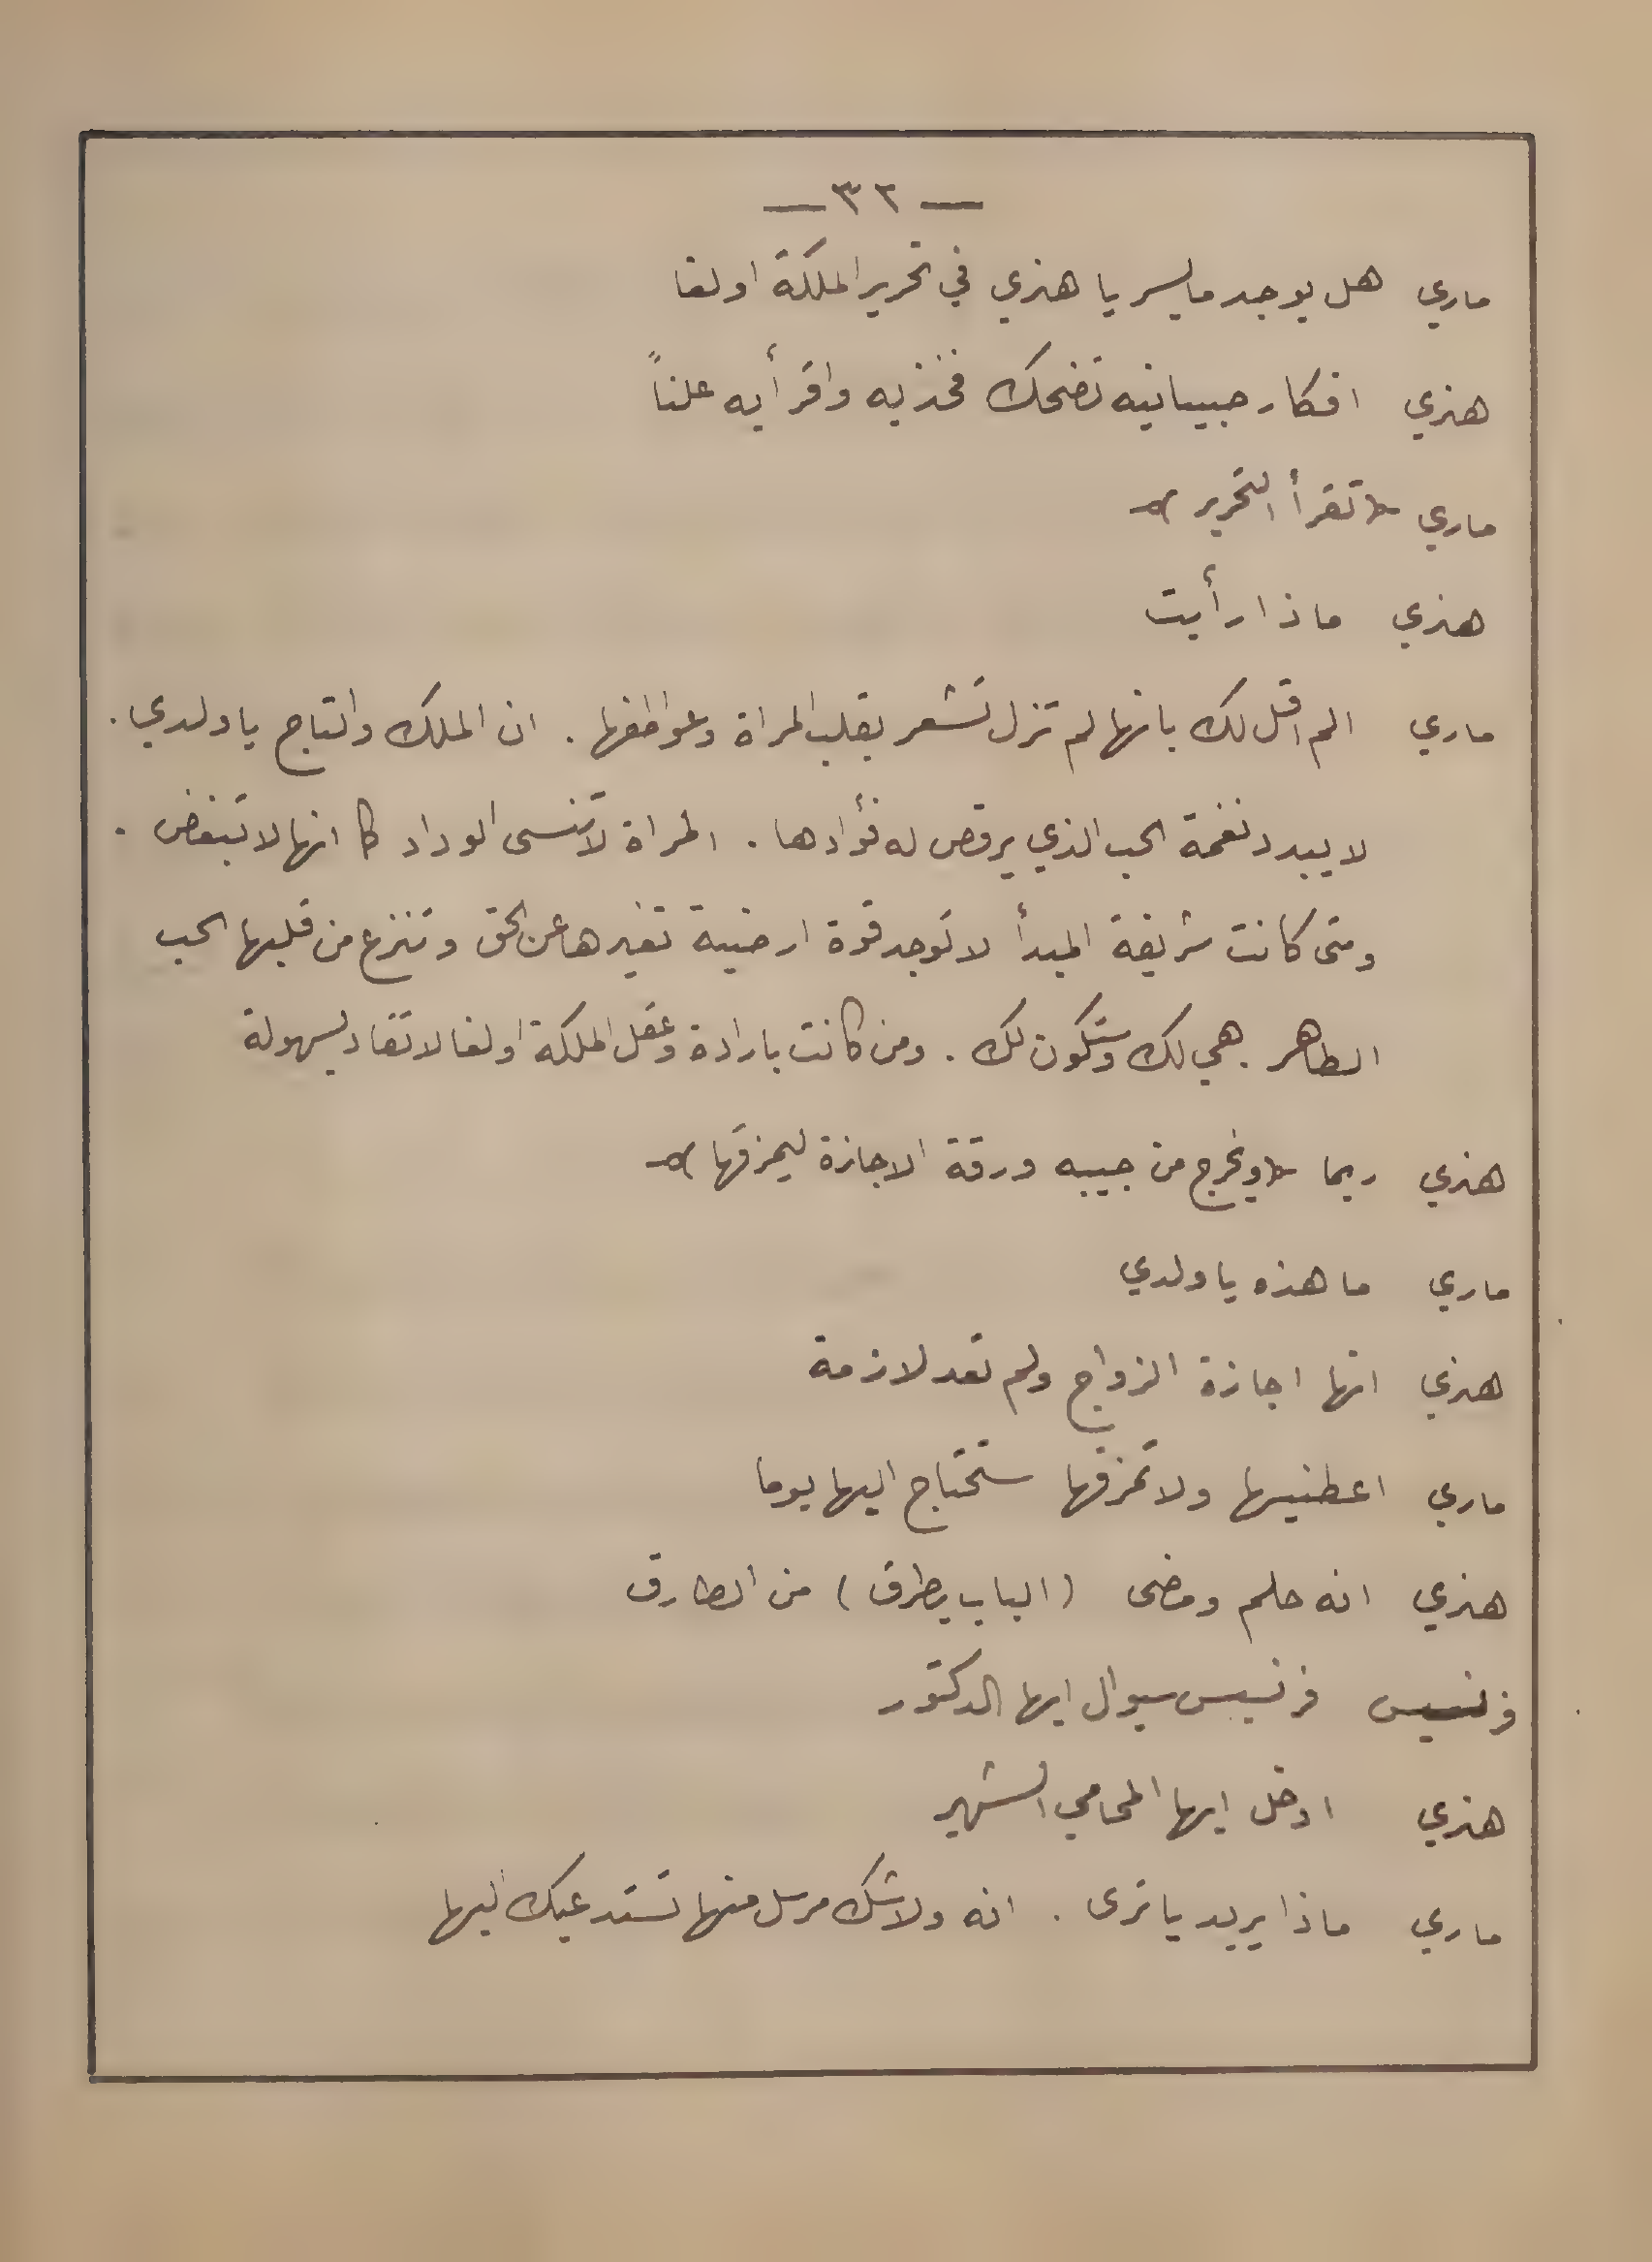 — ٣٢ —
ماري هل يوجد ما يسر يا هنري في تحرير الملكة اولغا
هنري افكار صبيانيه تضحك فخذيه واقرأيه علناً
ماري (تقرأ التحرير)
هنري ماذا رأيت
ماري الم اقل لك بانها لم تزل تشعر بقلب المراة وعواطفها . ان الملك والتاج يا ولدي .
لا يبدد نغمة الحب الذي يرقص له فؤادها . المراة لا تنسى الوداد كما انها لا تبغض .
ومتى كانت شريفة المبدأ لا توجد قوة ارضية تغيرها عن الحق وتنزع من قلبها الحب
الطاهر . هي لك وستكون لك . ومن كانت بارادة وعقل الملكة اولغا لا تقاد بسهولة
هنري ربما (ويخرج من جيبه ورقة الاجازة ليمزقها)
ماري ما هذه يا ولدي
هنري انها اجازة الزواج ولم تعد لازمة
ماري اعطنيها ولا تمزقها ستحتاج اليها يوما
هنري انه حلم ومضى (الباب يطرق) من الطارق
فرنسيس فرنسيس سيوال ايها الدكتور
هنري ادخل ايها المحامي الشهير
ماري ماذا يريد يا ترى . انه ولا شك مرسل منها تستدعيك اليها